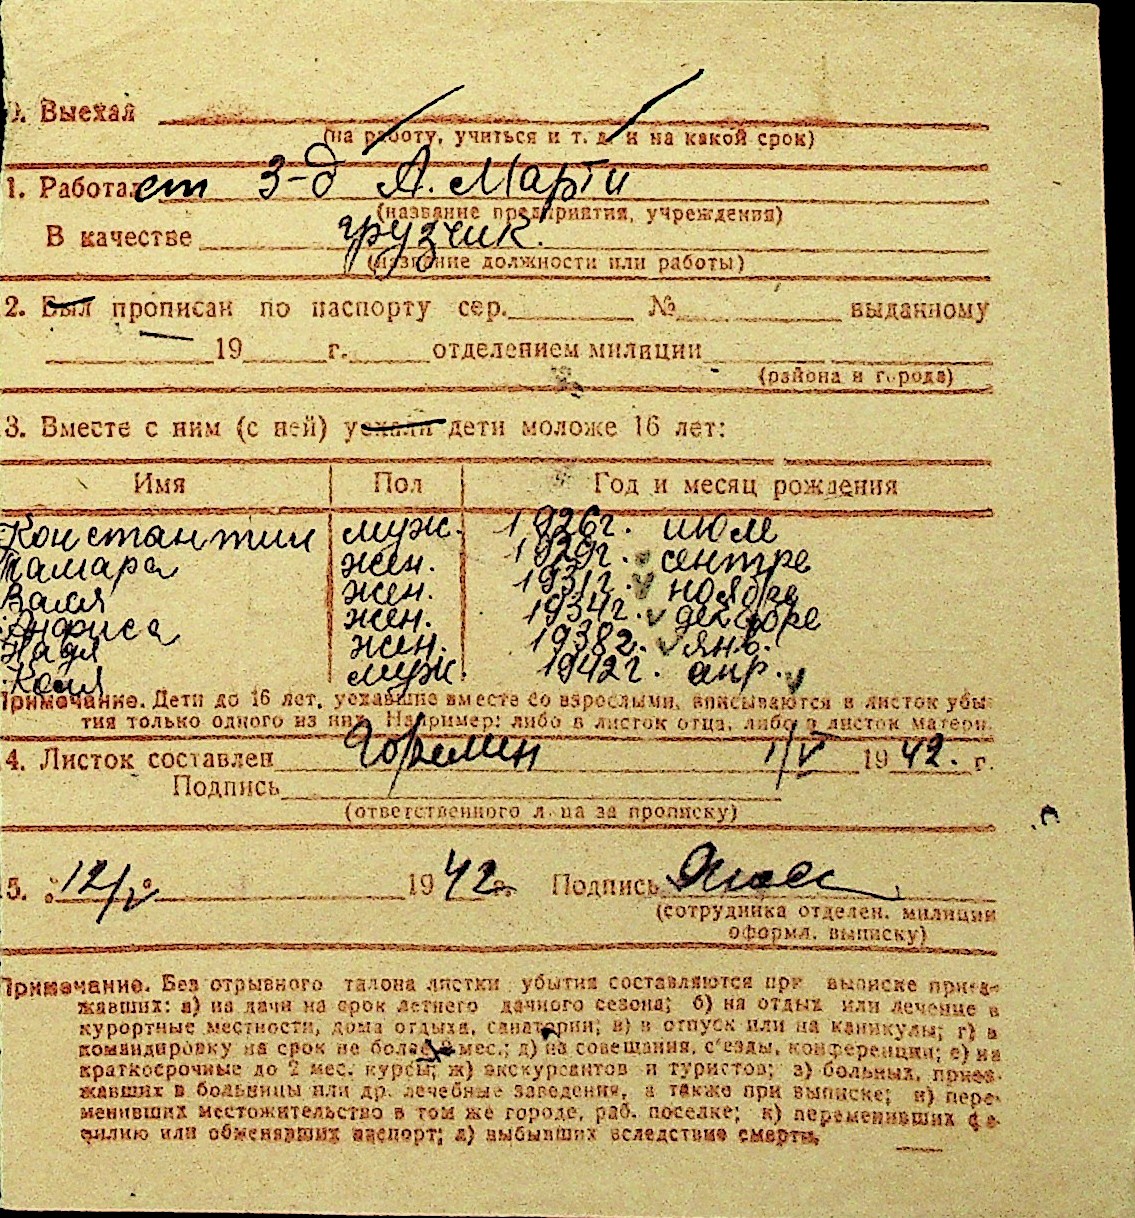 0. Выехал
(на работу, учиться и т. д. и на какой срок)
1. Работал ет з-д А. Марти
(название предприятия, учреждения)
В качестве грузчик.
(название должности или работы)
2. Был прописан по паспорту сер. № выданному
19 г. отделением милиции
(района и города)
3. Вместе с ним (с ней) уехали дети моложе 16 лет:
Имя Пол Год и месяц рождения
Константин муж. 1926г. июле
Тамара жен. 1929г. сентре
Валя жен. 1931г. ноябре
Анфиса жен. 1934г. декабре
Надя жен. 1938г. янв.
Коля муж. 1942г. апр.
Примечание. Дети до 16 лет, уехавшие вместе со взрослыми, вписываются в листок убы-
тия только одного из них. Например: либо в листок отца, либо в листок матери.
4. Листок составлен 1/V 1942. г.
Подпись
(ответственного лица за прописку)
5. 12/V 1942 г. Подпись
(сотрудника отделен. милиции
оформл. выписку)
Примечание. Без отрывного талона листки убытия составляются при выписке приез-
жавших: а) на дачи на срок летнего дачного сезона; б) на отдых или лечение в
курортные местности, дома отдыха, санатории; в) в отпуск или на каникулы; г) в
командировку на срок не более 2 мес.; д) на совещания, с'езды, конференции; е) на
краткосрочные до 2 мес. курсы; ж) экскурсантов и туристов; з) больных, приез-
жавших в больницы или др. лечебные заведения, а также при выписке; и) пере-
менивших местожительство в том же городе, раб. поселке; к) переменивших фа-
милию или обменявших паспорт; л) выбывших вследствие смерти.